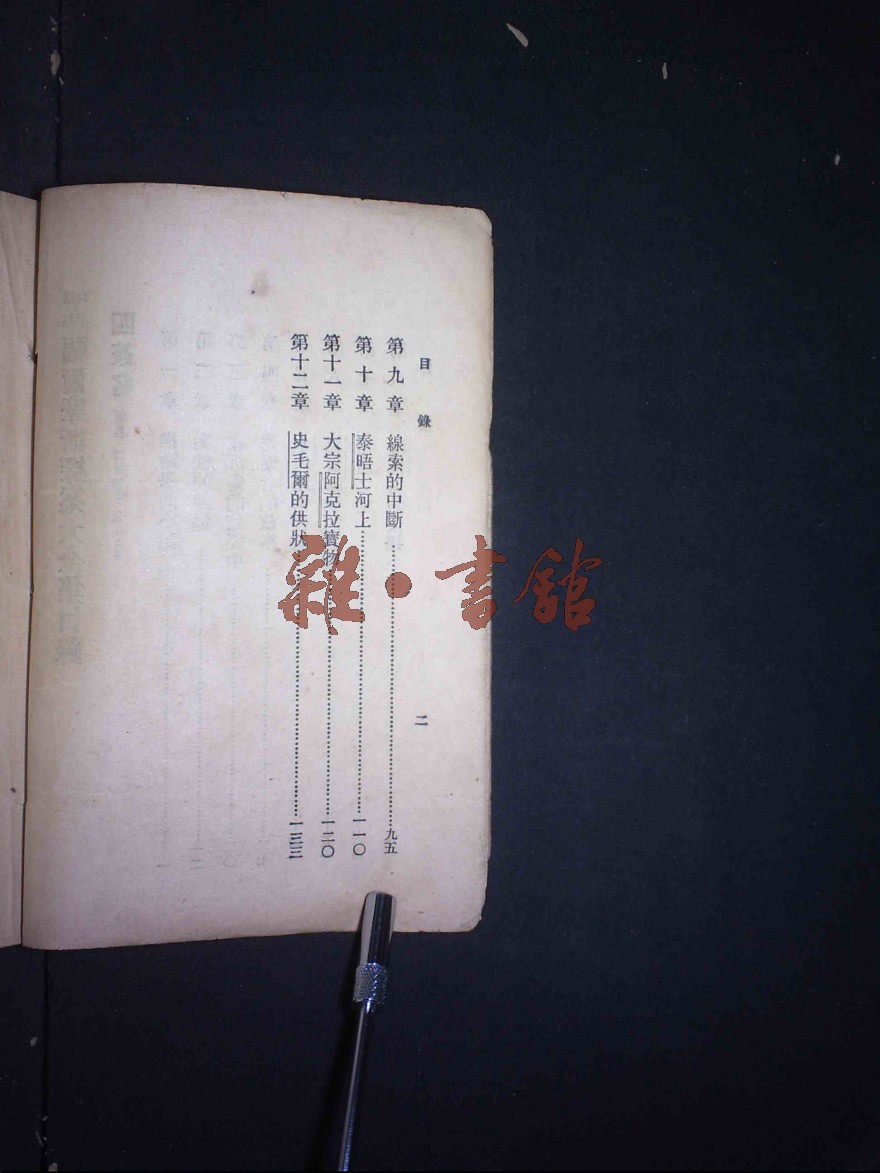 目錄
二
第九章 線索的中斷……九五
第十章 泰晤士河上……一一〇
第十一章 大宗阿克拉寶物……一二〇
第十二章 史毛爾的供狀……一三三
雜·書館